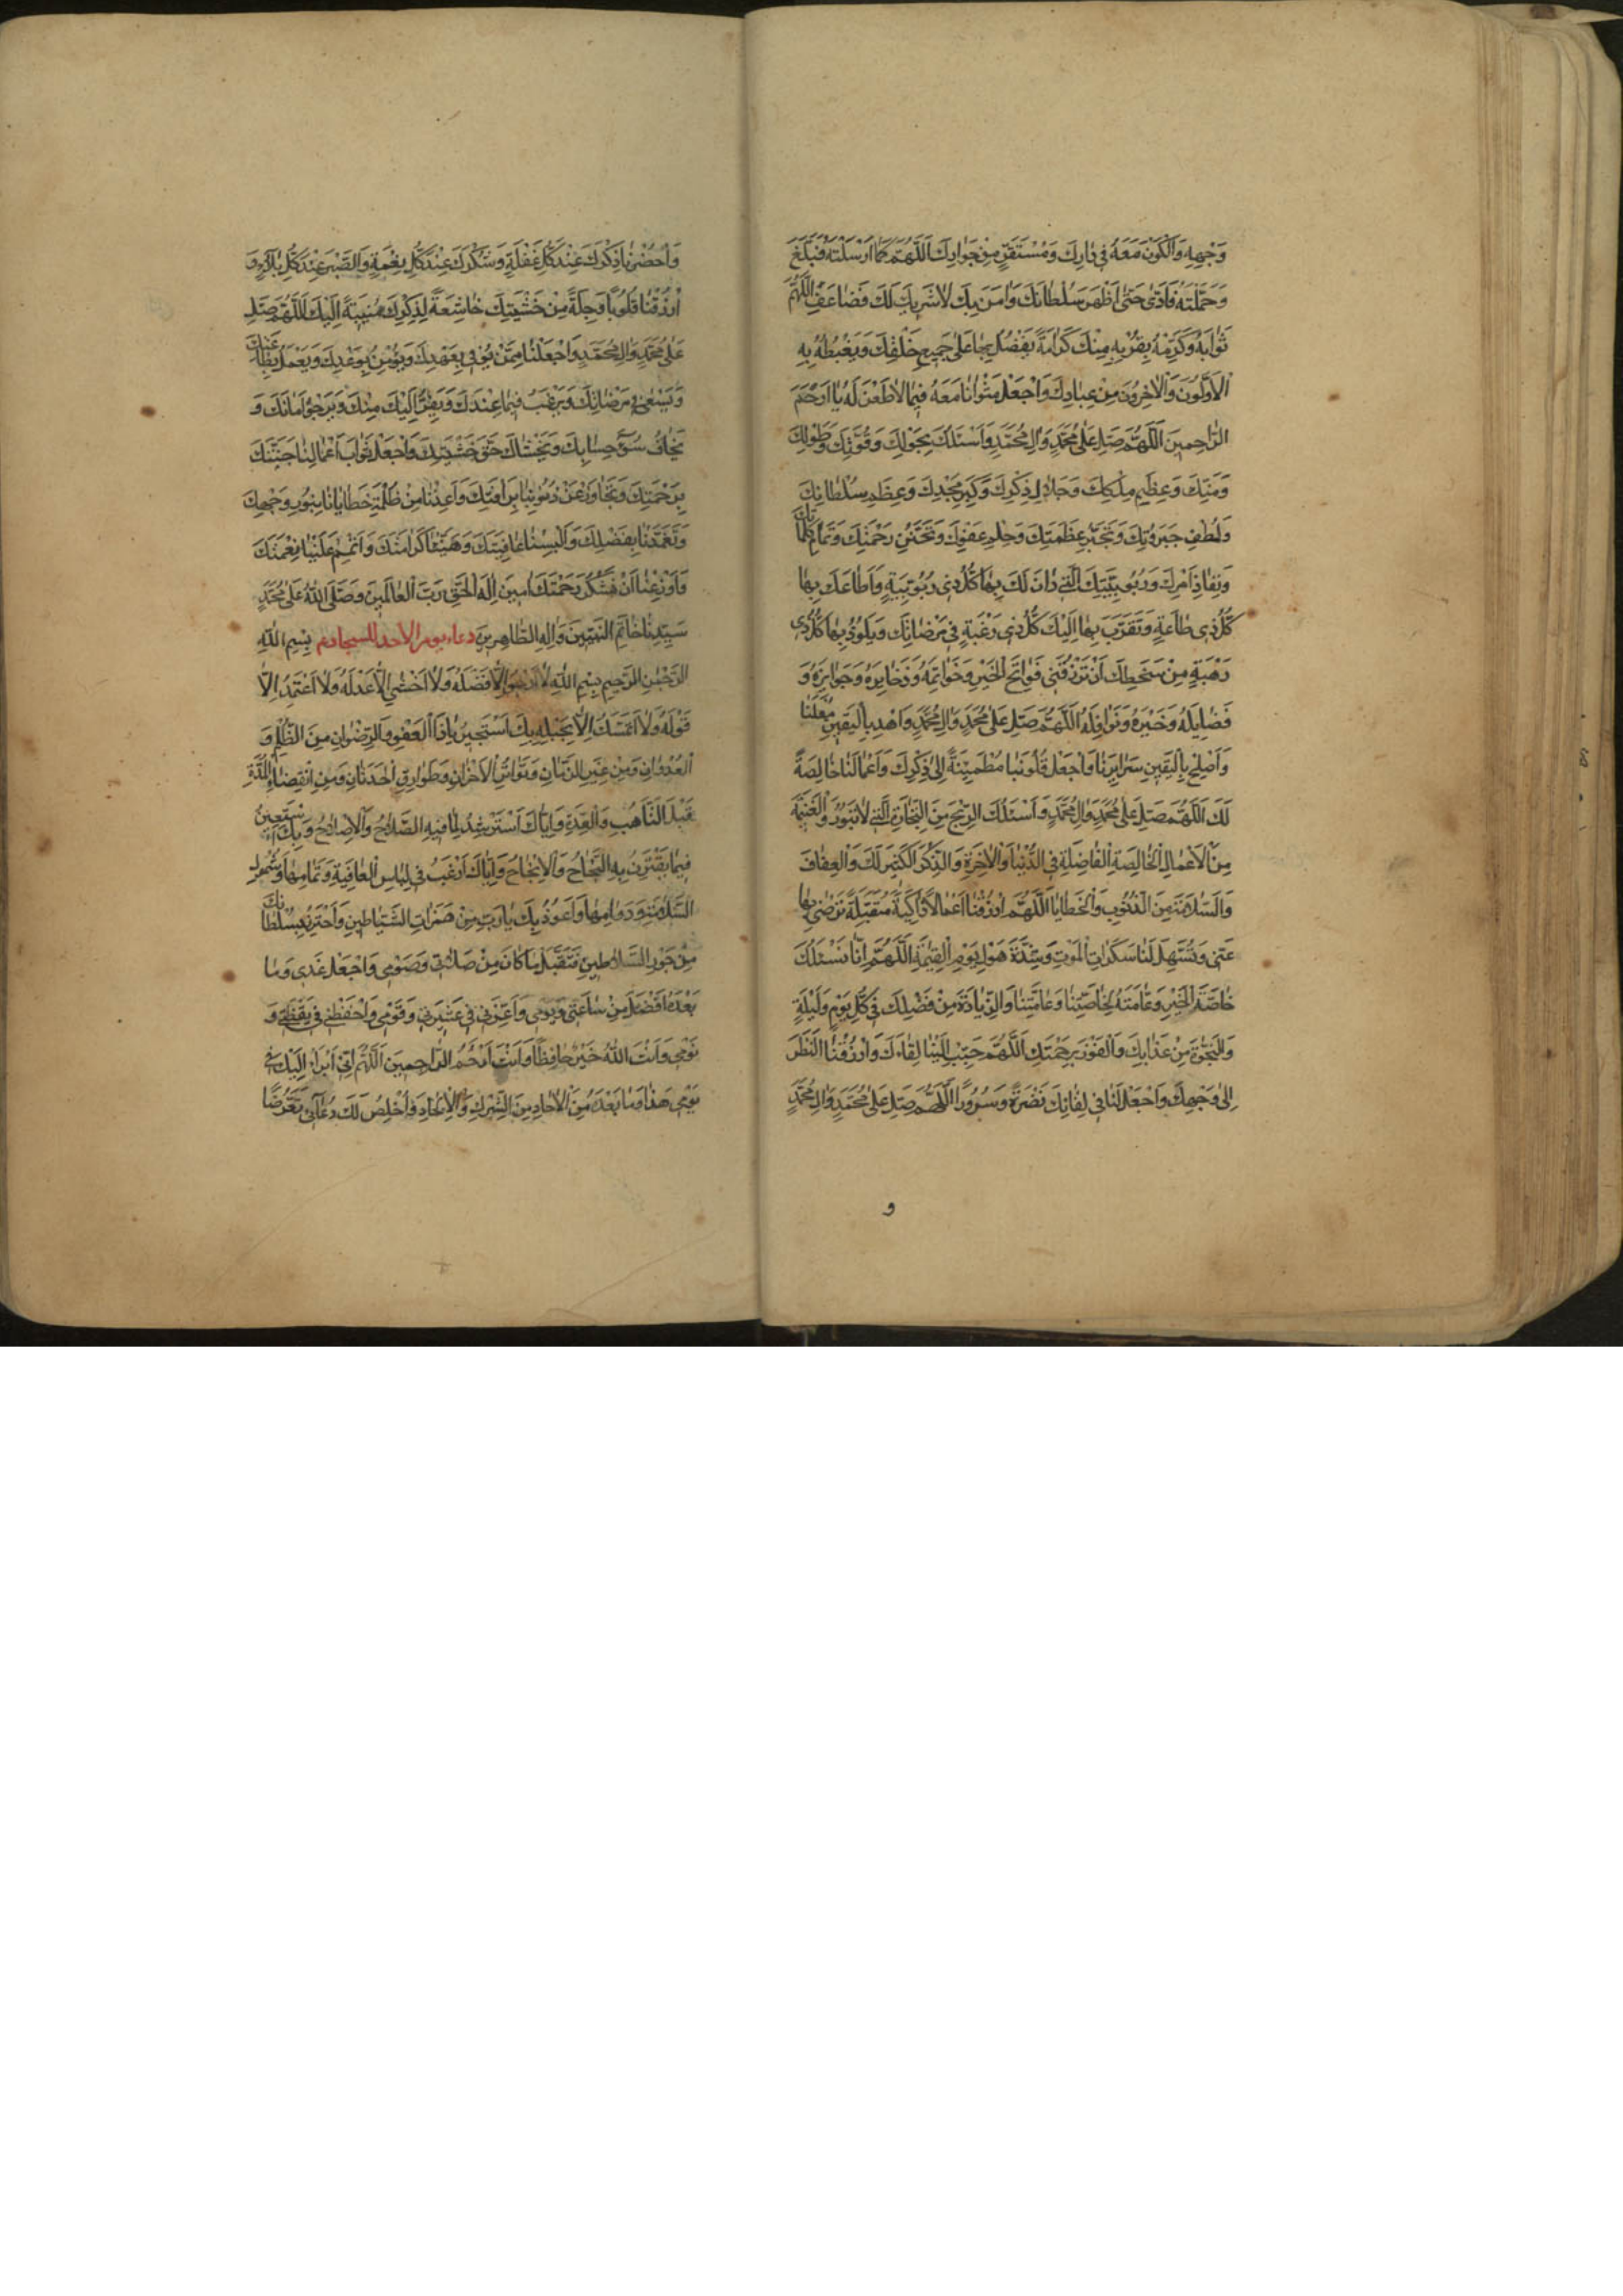 وَجْهِهِ وَالْكَوْنَ مَعَهُ فِي دٰارِكَ وَمُسْتَقَرٍّ مِنْ جَوٰارِكَ اَللّٰهُمَّ كَمٰا اَرْسَلْتَهُ فَبَلَّغَ
وَحَمَّلْتَهُ فَاَدّٰى حَتّٰى اَظْهَرَ سُلْطٰانَكَ وَاٰمَنَ بِكَ لاٰ شَرِيكَ لَكَ فَضٰاعِفِ اللّٰهُمَّ
ثَوٰابَهُ وَكَرِّمْهُ بِقُرْبِهِ مِنْكَ كَرٰامَةً يَفْضُلُ بِهٰا عَلٰى جَمِيعِ خَلْقِكَ وَيَغْبِطُهُ بِهِ
الْاَوَّلُونَ وَالْاٰخِرُونَ مِنْ عِبٰادِكَ وَاجْعَلْ مَثْوٰانٰا مَعَهُ فِيمٰا لاٰ ظَعْنَ لَهُ يٰا اَرْحَمَ
الرّٰاحِمِينَ اَللّٰهُمَّ صَلِّ عَلٰى مُحَمَّدٍ وَاٰلِ مُحَمَّدٍ وَاَسْئَلُكَ بِحَوْلِكَ وَقُوَّتِكَ وَطَوْلِكَ
وَمَنِّكَ وَعَظِيمِ مِلْكِكَ وَجَلاٰلِ ذِكْرِكَ وَكِبَرِ مَجْدِكَ وَعِظَمِ سُلْطٰانِكَ
وَلُطْفِ جَبَرُوتِكَ وَتَجَبُّرِ عَظَمَتِكَ وَحِلْمِ عَفْوِكَ وَتَحَنُّنِ رَحْمَتِكَ وَتَمٰامِ كَلِمٰاتِكَ
وَنِفٰاذِ اَمْرِكَ وَرُبُوبِيَّتِكَ الَّتِي دٰانَ لَكَ بِهٰا كُلُّ ذِي رُبُوبِيَّةٍ وَاَطٰاعَكَ بِهٰا
كُلُّ ذِي طٰاعَةٍ وَتَقَرَّبَ بِهٰا اِلَيْكَ كُلُّ ذِي رَغْبَةٍ فِي مَرْضٰاتِكَ وَيَلُوذُ بِهٰا كُلُّ ذِي
رَهْبَةٍ مِنْ سَخَطِكَ اَنْ تَرْزُقَنِي فَوٰاتِحَ الْخَيْرِ وَخَوٰاتِمَهُ وَذَخٰايِرَهُ وَجَوٰايِزَهُ وَ
فَضٰايِلَهُ وَخَيْرَهُ وَنَوٰافِلَهُ اَللّٰهُمَّ صَلِّ عَلٰى مُحَمَّدٍ وَاٰلِ مُحَمَّدٍ وَاهْدِ بِالْيَقِينِ مُعْلَنٰا
وَاَصْلِحْ بِالْيَقِينِ سَرٰايِرَنٰا وَاجْعَلْ قُلُوبَنٰا مُطْمَئِنَّةً اِلٰى ذِكْرِكَ وَاَعْمٰالَنٰا خٰالِصَةً
لَكَ اَللّٰهُمَّ صَلِّ عَلٰى مُحَمَّدٍ وَاٰلِ مُحَمَّدٍ وَاَسْئَلُكَ الرِّبْحَ مِنَ التِّجٰارَةِ الَّتِي لاٰ تَبُورُ وَالْغَنِيمَةَ
مِنَ الْاَعْمٰالِ الْخٰالِصَةِ الْفٰاضِلَةِ فِي الدُّنْيٰا وَالْاٰخِرَةِ وَالذِّكْرَ الْكَثِيرَ لَكَ وَالْعِفٰافَ
وَالسَّلاٰمَةَ مِنَ الذُّنُوبِ وَالْخَطٰايٰا اَللّٰهُمَّ ارْزُقْنٰا اَعْمٰالاً زٰاكِيَةً مُتَقَبَّلَةً تَرْضٰى بِهٰا
عَنّٰى وَتُسَهِّلُ لَنٰا سَكَرٰاتِ الْمَوْتِ وَشِدَّةَ هَوْلِ يَوْمِ الْقِيٰمَةِ اَللّٰهُمَّ اِنّٰا نَسْئَلُكَ
خٰاصَّةَ الْخَيْرِ وَعٰامَّتَهُ لِخٰاصَّتِنٰا وَعٰامَّتِنٰا وَالزِّيٰادَةَ مِنْ فَضْلِكَ فِي كُلِّ يَوْمٍ وَلَيْلَةٍ
وَالنَّجٰوةَ مِنْ عَذٰابِكَ وَالْفَوْزَ بِرَحْمَتِكَ اَللّٰهُمَّ حَبِّبْ اِلَيْنٰا لِقٰاءَكَ وَارْزُقْنٰا النَّظَرَ
اِلٰى وَجْهِكَ وَاجْعَلْ لَنٰا فِي لِقٰائِكَ نَضْرَةً وَسُرُورًا اَللّٰهُمَّ صَلِّ عَلٰى مُحَمَّدٍ وَاٰلِ مُحَمَّدٍ
و
وَاَحْضِرْنٰا ذِكْرَكَ عِنْدَ كُلِّ غَفْلَةٍ وَشُكْرَكَ عِنْدَ كُلِّ نِعْمَةٍ وَالصَّبْرَ عِنْدَ كُلِّ بَلاٰءٍ وَ
ارْزُقْنٰا قُلُوبًا وَجِلَةً مِنْ خَشْيَتِكَ خٰاشِعَةً لِذِكْرِكَ مُنِيبَةً اِلَيْكَ اَللّٰهُمَّ صَلِّ
عَلٰى مُحَمَّدٍ وَاٰلِ مُحَمَّدٍ وَاجْعَلْنٰا مِمَّنْ يُوفِي بِعَهْدِكَ وَيُؤْمِنُ بِوَعْدِكَ وَيَعْمَلُ بِطٰاعَتِكَ
وَيَسْعٰى فِي مَرْضٰاتِكَ وَيَرْغَبُ فِيمٰا عِنْدَكَ وَيَفِرُّ اِلَيْكَ مِنْكَ وَيَرْجُو اَيّٰامَكَ وَ
يَخٰافُ سُوءَ حِسٰابِكَ وَيَخْشٰاكَ حَقَّ خَشْيَتِكَ وَاجْعَلْ ثَوٰابَ اَعْمٰالِنٰا جَنَّتَكَ
بِرَحْمَتِكَ وَتَجٰاوَزْ عَنْ ذُنُوبِنٰا بِرَأْفَتِكَ وَاَعِذْنٰا مِنْ ظُلْمَةِ خَطٰايٰانٰا بِنُورِ وَجْهِكَ
وَتَغَمَّدْنٰا بِفَضْلِكَ وَاَلْبِسْنٰا عٰافِيَتَكَ وَهَنِّئْنٰا كَرٰامَتَكَ وَاَتْمِمْ عَلَيْنٰا نِعْمَتَكَ
وَاَوْزِعْنٰا اَنْ نَشْكُرَ رَحْمَتَكَ اٰمِينَ اِلٰهَ الْحَقِّ رَبَّ الْعٰالَمِينَ وَصَلَّى اللّٰهُ عَلٰى مُحَمَّدٍ
سَيِّدِنٰا خٰاتَمِ النَّبِيِّينَ وَاٰلِهِ الطّٰاهِرِينَ دعاء يوم الاحد للسجاد ع بِسْمِ اللّٰهِ
الرَّحْمٰنِ الرَّحِيمِ بِسْمِ اللّٰهِ الَّذِي لاٰ اَرْجُو اِلاّٰ فَضْلَهُ وَلاٰ اَخْشٰى اِلاّٰ عَدْلَهُ وَلاٰ اَعْتَمِدُ اِلاّٰ
قَوْلَهُ وَلاٰ اَتَمَسَّكُ اِلاّٰ بِحَبْلِهِ بِكَ اَسْتَجِيرُ يٰا ذَا الْعَفْوِ وَالرِّضْوٰانِ مِنَ الظُّلْمِ وَ
الْعُدْوٰانِ وَمِنْ غِيَرِ الزَّمٰانِ وَتَوٰاتُرِ الْاَحْزٰانِ وَطَوٰارِقِ الْحَدَثٰانِ وَمِنِ انْقِضٰاءِ الْمُدَّةِ
قَبْلَ التَّاَهُّبِ وَالْعُدَّةِ وَاِيّٰاكَ اَسْتَرْشِدُ لِمٰا فِيهِ الصَّلاٰحُ وَالْاِصْلاٰحُ وَبِكَ اَسْتَعِينُ
فِيمٰا يَقْتَرِنُ بِهِ النَّجٰاحُ وَالْاِنْجٰاحُ وَاِيّٰاكَ اَرْغَبُ فِي لِبٰاسِ الْعٰافِيَةِ وَتَمٰامِهٰا وَشُمُولِ
السَّلاٰمَةِ وَدَوٰامِهٰا وَاَعُوذُ بِكَ يٰا رَبِّ مِنْ هَمَزٰاتِ الشَّيٰاطِينِ وَاَحْتَرِزُ بِسُلْطٰانِكَ
مِنْ جَوْرِ السَّلاٰطِينِ فَتَقَبَّلْ مٰا كٰانَ مِنْ صَلاٰتِي وَصَوْمِي وَاجْعَلْ غَدِي وَمٰا
بَعْدَهُ اَفْضَلَ مِنْ سٰاعَتِي وَيَوْمِي وَاَعِزَّنِي فِي عَشِيرَتِي وَقَوْمِي وَاحْفَظْنِي فِي يَقْظَتِي وَ
نَوْمِي وَاَنْتَ اللّٰهُ خَيْرٌ حٰافِظًا وَاَنْتَ اَرْحَمُ الرّٰاحِمِينَ اَللّٰهُمَّ اِنِّي اَبْرَاُ اِلَيْكَ فِي
يَوْمِي هٰذٰا وَمٰا بَعْدَهُ مِنَ الْاٰحٰادِ مِنَ الشِّرْكِ وَالْاِلْحٰادِ وَاُخْلِصُ لَكَ دُعٰآئِي تَعَرُّضًا